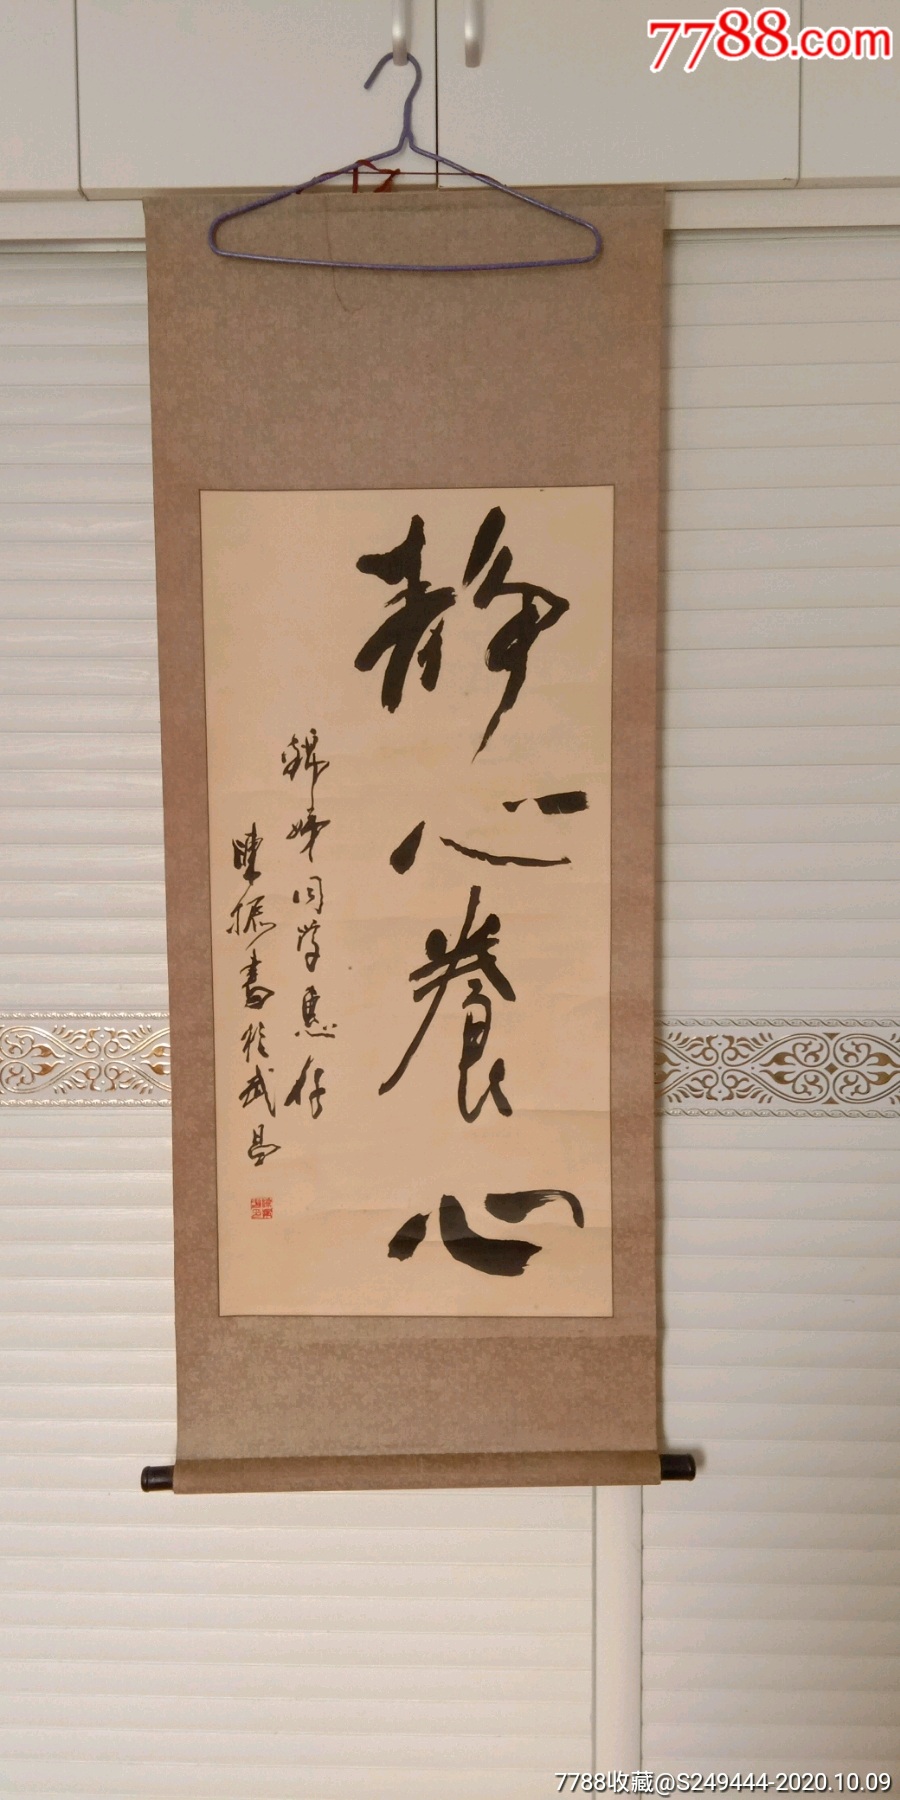 7788.com
静心養心
錦娣同学惠存
陳振書於武昌
7788收藏@S249444-2020.10.09